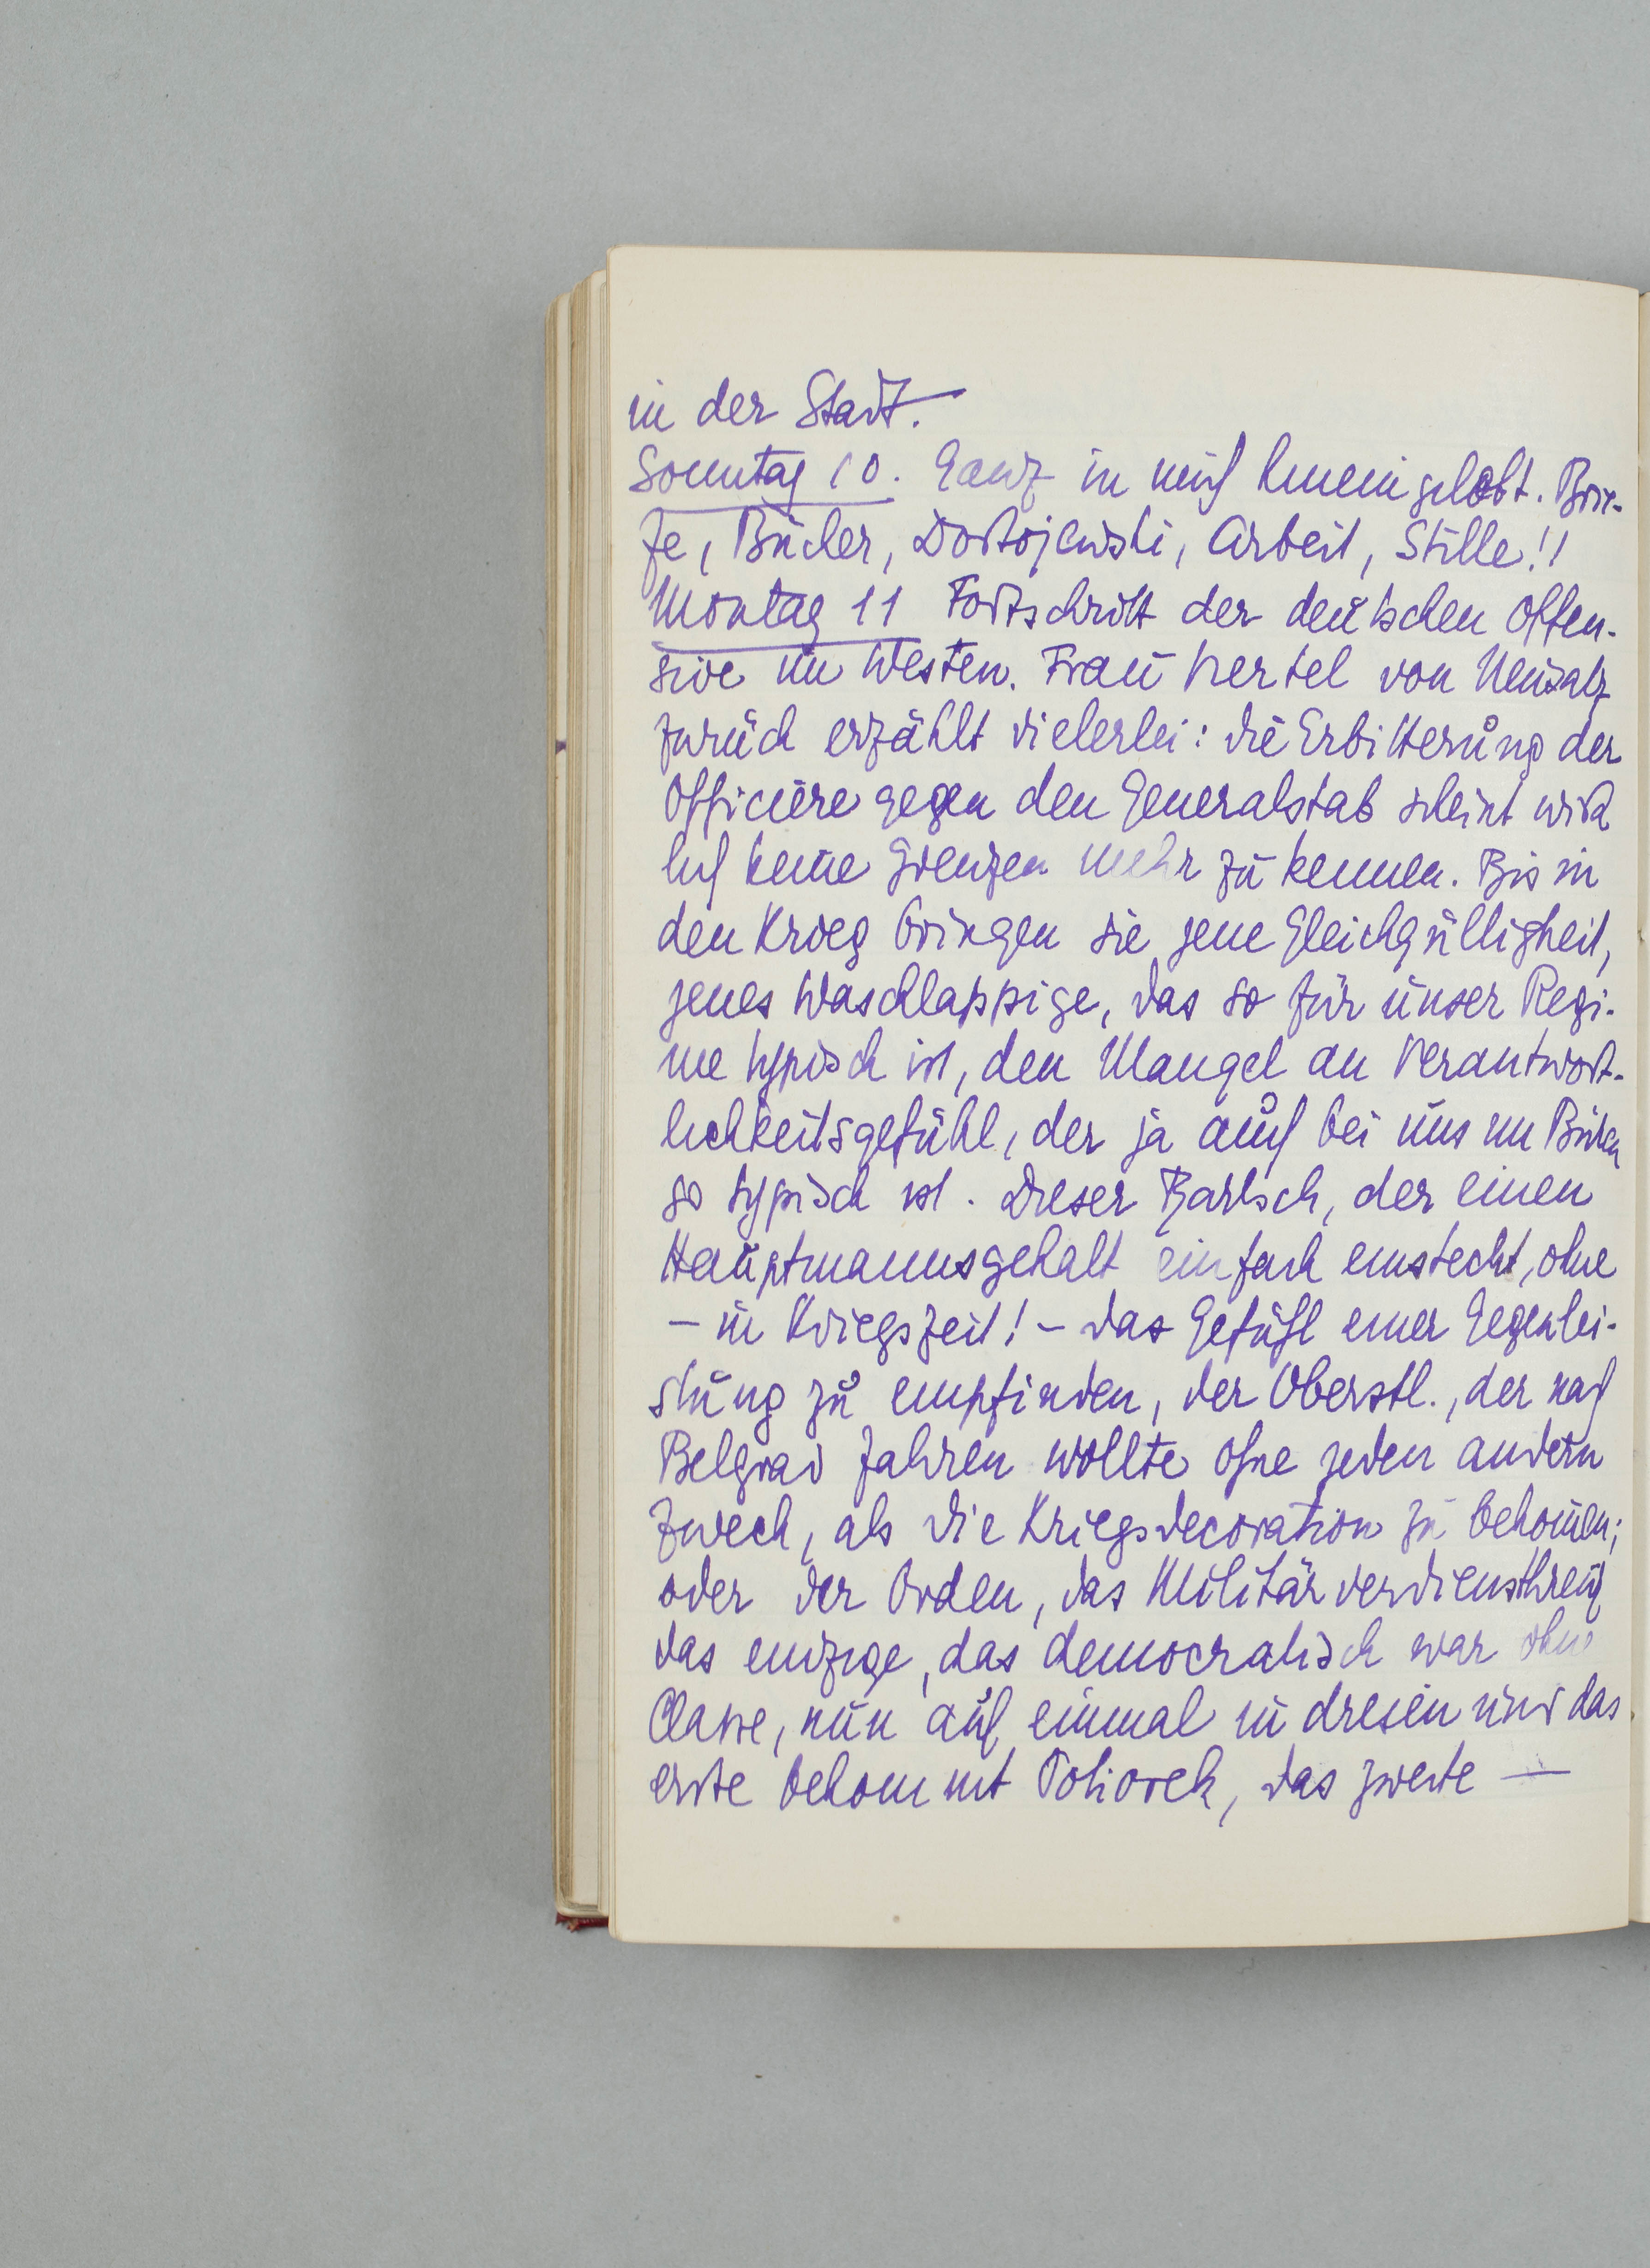 in der Stadt.
Sonntag 10. Ganz in mich hineingelebt. Brie-
fe, Bücher, Dostojewski, Arbeit, Stille!!
Montag 11 Fortschritt der deutschen Offen-
sive im Westen. Frau Hertel von Neusalz
zurück erzählt vielerlei: die Erbitterung der
Officiere gegen den Generalstab scheint wirk
lich keine Grenzen mehr zu kennen. Bis in
den Krieg bringen sie jene Gleichgültigkeit,
jenes Waschlappige, das so für unser Regi-
me typisch ist, den Mangel an Verantwort-
lichkeitsgefühl, der ja auch bei uns im Büro
so typisch ist. Dieser Bartsch, der einen
Hauptmannsgehalt einfach einsteckt, ohne
– in Kriegszeit! – das Gefühl einer Gegenlei-
stung zu empfinden, der Oberstl., der nach
Belgrad fahren wollte ohne jeden andern
Zweck, als die Kriegsdecoration zu bekommen;
oder der Orden, das Militärverdienstkreuz
das einzige, das democratisch war ohne
Classe, nun auf einmal in dreien und das
erste bekommt Potiorek, das zweite —